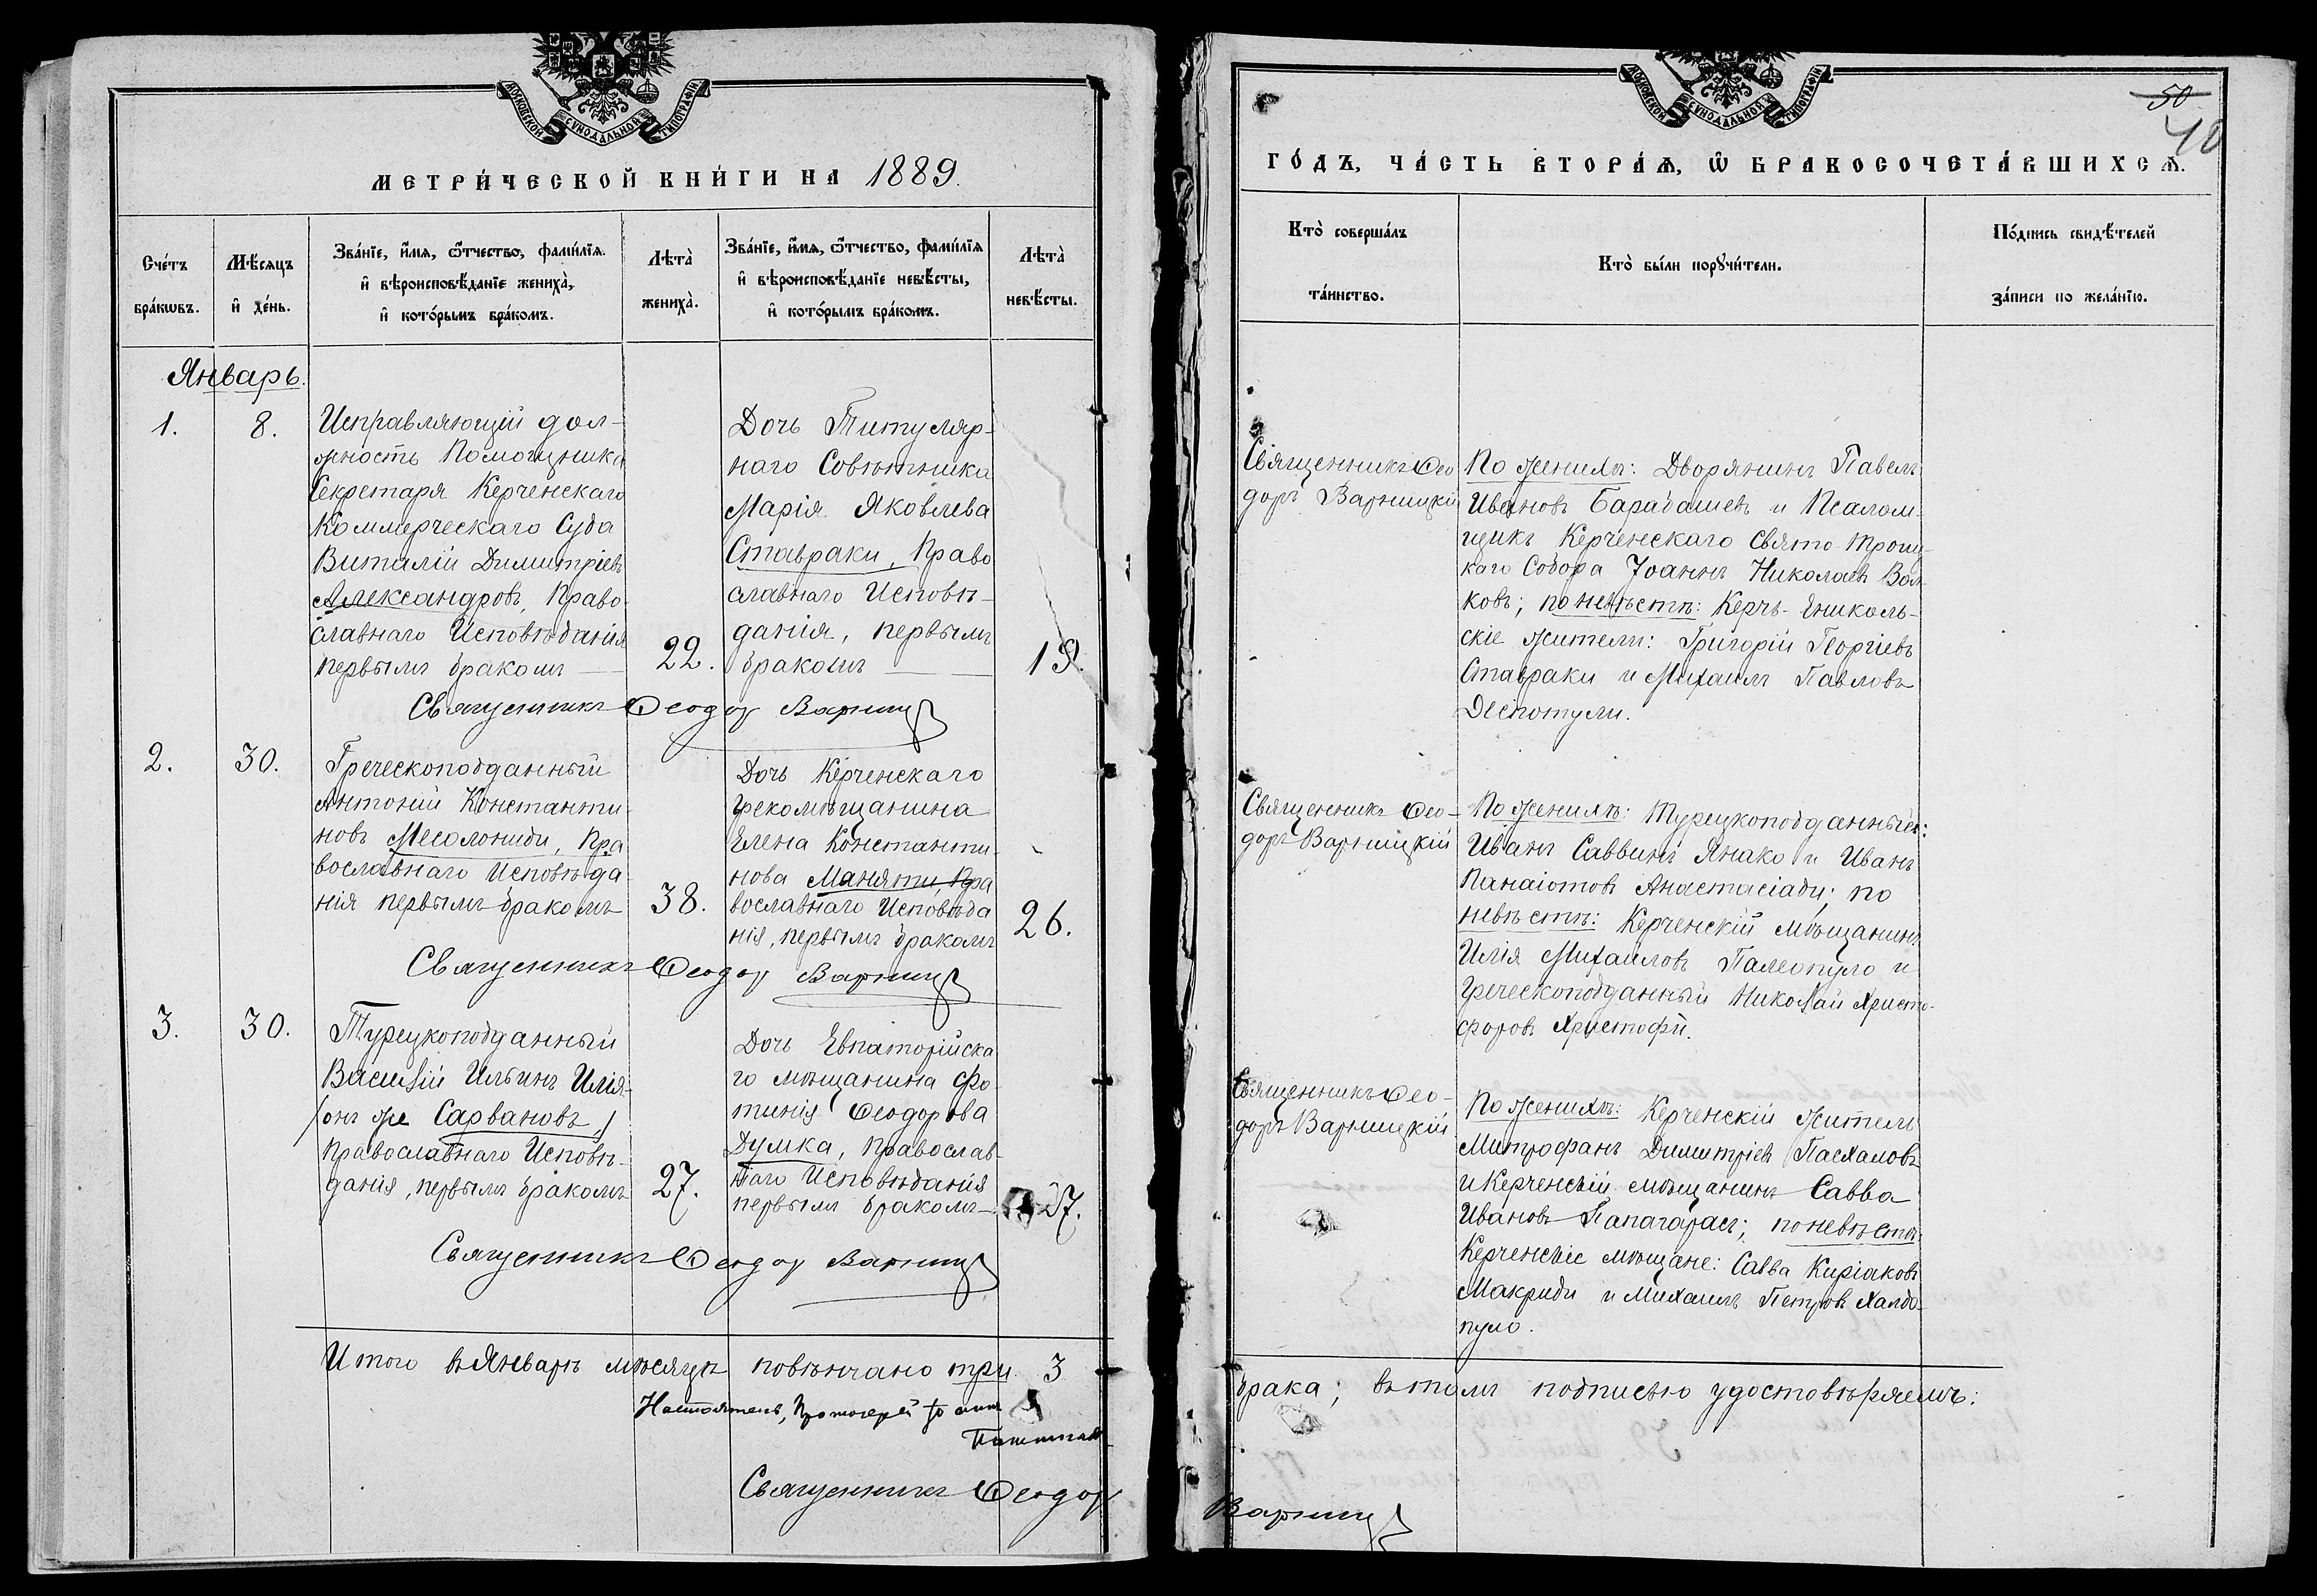 МОСКОВСКОЙ СѴНОДАЛЬНОЙ ТИПОГРАФІИ
МЕТРИ́ЧЕСКОЙ КНИ́ГИ НА 1889.
Сче́тъ бра́кωвъ.
Мѣ́сяцъ и҆ де́нь.
Зва́нїе, и҆́мя, ѻ҆́тчество, фами́лїя
и҆ вѣроисповѣ́данїе жениха̀,
и҆ кото́рымъ бра́комъ.
Лѣта̀ жениха̀.
Зва́нїе, и҆́мя, ѻ҆́тчество, фами́лїя
и҆ вѣроисповѣ́данїе невѣ́сты,
и҆ кото́рымъ бра́комъ.
Лѣта̀ невѣ́сты.
Январь.
1.
8.
Исправляющій дол-
жность Помощника
Секретаря Керченскаго
Коммерческаго Суда
Виталій Димитріевъ
Александровъ, Право-
славнаго Исповѣданія
первымъ бракомъ
22.
Дочь Титуляр-
наго Совѣтника
Марія Яковлева
Ставраки, Право
славнаго Исповѣ-
данія, первымъ
бракомъ
19.
Священникъ Ѳеодор Варниц
2.
30.
Греческоподданный
Антоній Константи-
новъ Месолониди, Пра
вославнаго Исповѣда
нія первымъ бракомъ
38.
Дочь Керченскаго
грекомѣщанина
Елена Константи-
нова Маняти, Пра
вославнаго Исповѣда
нія, первымъ бракомъ
26.
Священникъ Ѳеодор Варниц
3.
30.
Турецкоподданный
Василій Ильинъ Илія-
/онъ же Сарвановъ,/
Православнаго Исповѣ-
данія, первымъ бракомъ
27.
Дочь Евпаторійска
го мѣщанина Фо-
тинія Ѳеодорова
Думка, Православ-
наго Исповѣданія
первымъ бракомъ
37.
Священникъ Ѳеодор Варниц
Итого въ Январѣ мѣсяцѣ повѣнчано три 3
Настоятель, Протоіерей Іоаннъ
Священникъ Ѳеодор
МОСКОВСКОЙ СѴНОДАЛЬНОЙ ТИПОГРАФІИ
50
40
ГО́ДЪ, ЧА́СТЬ ВТОРА́Ѧ, Ѽ БРАКОСОЧЕТА́ВШИХСѦ.
Кто̀ соверша́лъ та́инство.
Кто̀ бы́ли порꙋчи́тели.
По́дпись свидѣ́телей за́писи по жела́нїю.
Священникъ Ѳео
доръ Варницкій
По женихѣ: Дворянинъ Павелъ
Ивановъ Барабашевъ и Псалом-
щикъ Керченскаго Свято-Троиц-
каго Собора Іоаннъ Николаевъ Вол-
ковъ; по невѣстѣ: Керчь-Ениколь-
скіе жители: Григорій Георгіевъ
Ставраки и Михаилъ Павловъ
Деспотули.
Священникъ Ѳео-
доръ Варницкій
По женихѣ: Турецкоподданные:
Иванъ Саввинъ Янако и Иванъ
Панаіотовъ Анастасіади; по
невѣстѣ: Керченскій мѣщанинъ
Илія Михаиловъ Палеопуло и
греческоподданный Николай Христо-
форовъ Христофи.
Священникъ Ѳео-
доръ Варницкій
По женихѣ: Керченскій житель
Митрофанъ Димитріевъ Пасхаловъ
и Керченскій мѣщанинъ Савва
Ивановъ Папагарасъ; по невѣстѣ:
Керченскіе мѣщане: Савва Киріаковъ
Макриди и Михаилъ Петровъ Халдо-
пуло.
брака; въ томъ подписью удостовѣряемъ:
Варниц